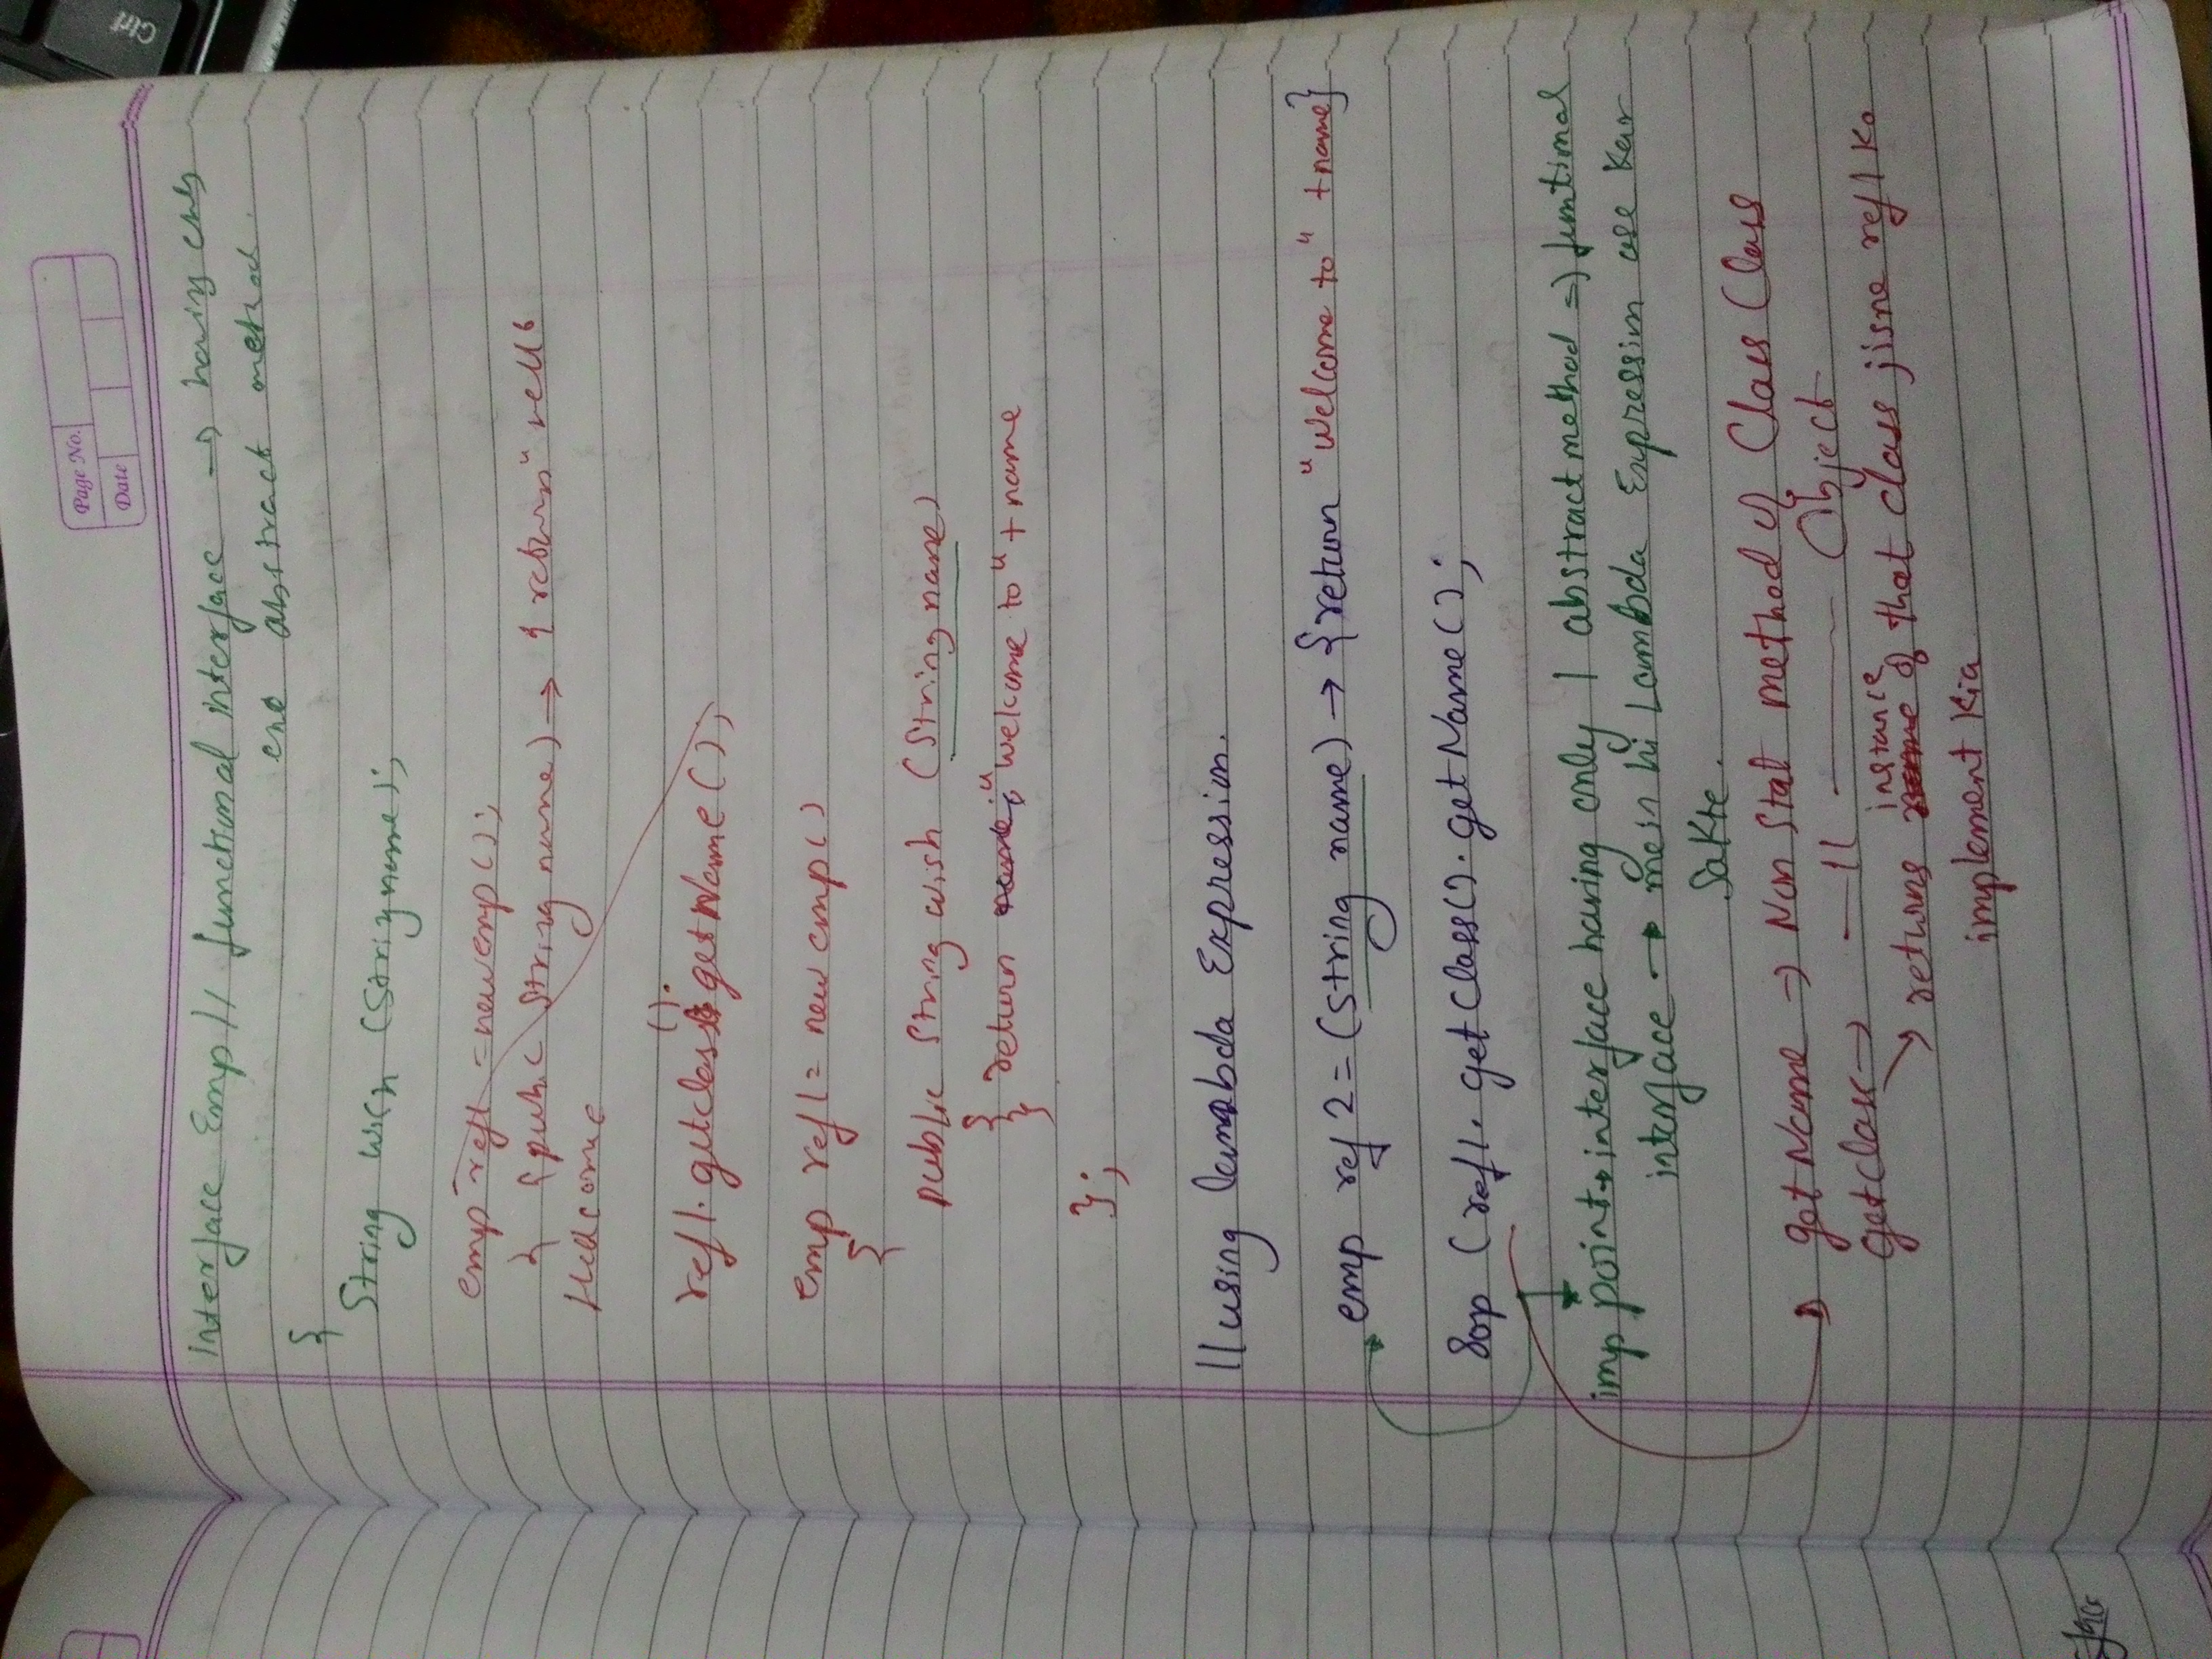 Page No.
Date
Interface Emp // functional interface → having only
one abstract method.
{
String wish (String name);
emp ref1 = new emp();
{ public String name) → { return "
ref1.getclass().getName();
emp ref1 = new emp()
{
public String wish (String name)
{ return "welcome to" + name
}
};
// using lamabda Expression.
emp ref2 = (String name) → {return "welcome to" + name}
Sop (ref1.getClass().getName();
imp point → interface having only 1 abstract method ⇒ functional
interface → mein hi Lambda Expression use kar
Sakte.
getName → Non Stat method of Class Class
getclass → —11— Object
returns instance of that class jisne ref1 ko
implement kia
Ctrl